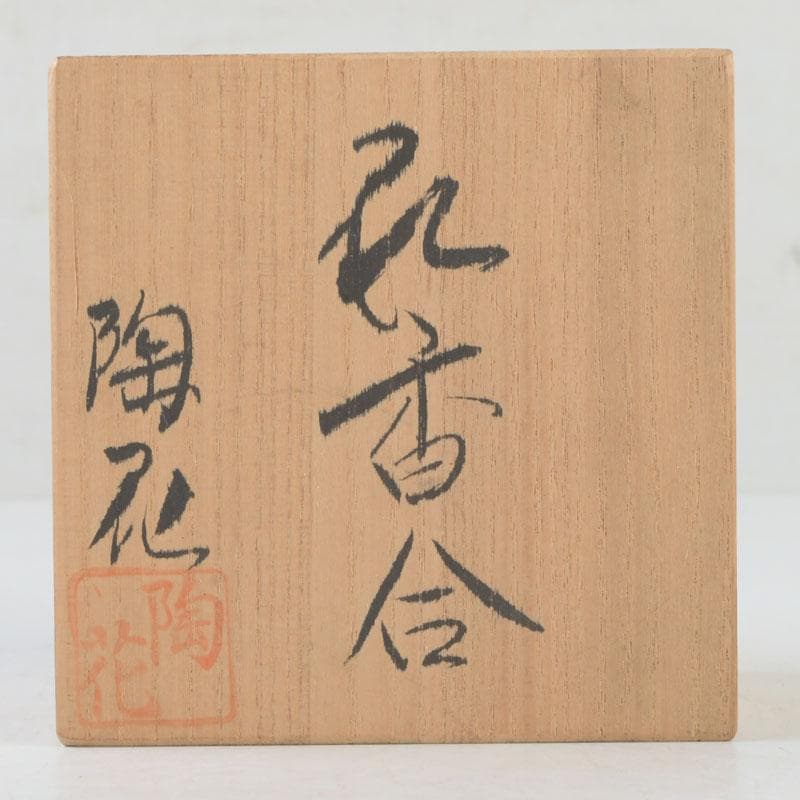 香合
陶花
陶花